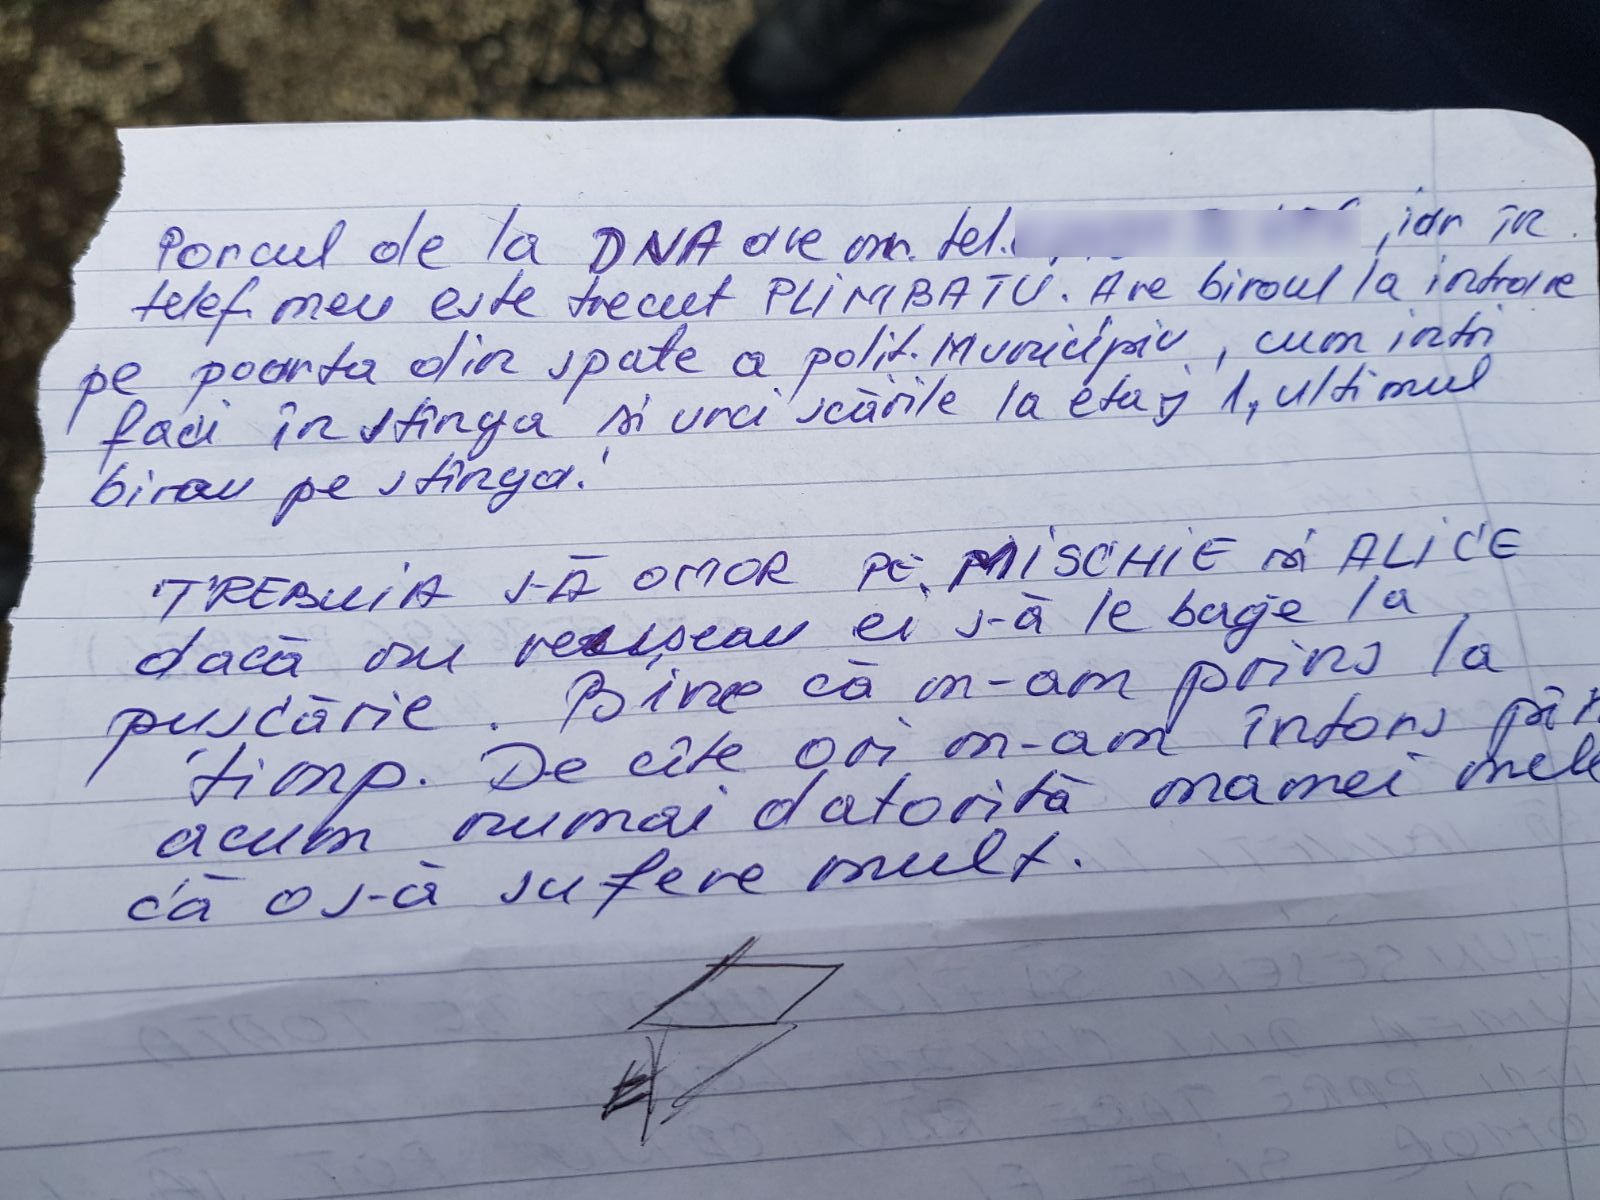 Porcul de la DNA are nr. tel. , iar în
telef. meu este trecut PLIMBATU. Are biroul la intrare
pe poarta din spate a polit. Municipiu, cum intri
faci în stînga si urci scările la etaj 1, ultimul
birou pe stînga!
TREBUIA S-Ă OMOR PE MISCHIE si ALICE
dacă nu reuseau ei s-ă le bage la
puscărie. Bine că m-am prins la
timp. De cîte ori m-am întors păn
acum numai datorită mamei mele
că o s-ă sufere mult.